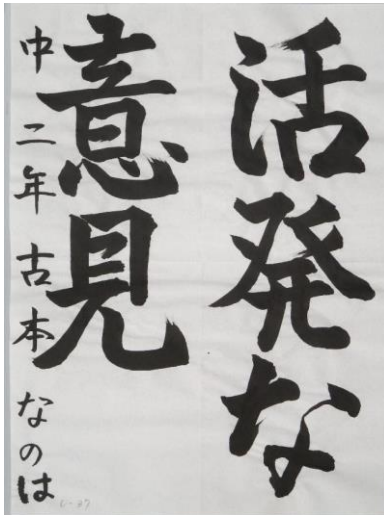 活発な
意見
中二年 古本 なのは